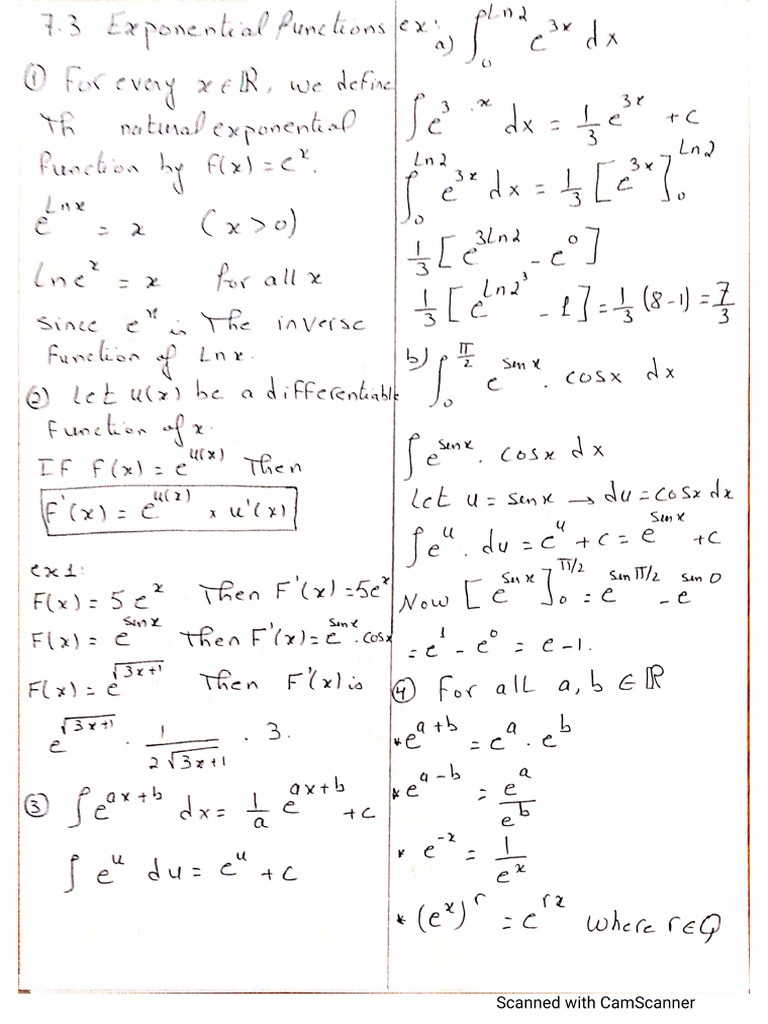 7.3 Exponential Functions
① For every x ∈ ℝ, we define
Th natural exponential
Function by f(x) = e^x.
e^{Lnx} = x (x > 0)
Ln e^x = x for all x
since e^x is The inverse
function of Lnx.
② Let u(x) be a differentiable
Function of x.
IF F(x) = e^{u(x)} Then
F'(x) = e^{u(x)} × u'(x)
ex1:
F(x) = 5e^x Then F'(x) = 5e^x
F(x) = e^{sinx} Then F'(x) = e^{sinx} · cosx
F(x) = e^{√(3x+1)} Then F'(x) is
e^{√(3x+1)} · 1/(2√(3x+1)) · 3.
③ ∫ e^{ax+b} dx = 1/a e^{ax+b} + c
∫ e^u du = e^u + c
ex:
a) ∫_0^{Ln2} e^{3x} dx
∫ e^{3·x} dx = 1/3 e^{3x} + c
∫_0^{Ln2} e^{3x} dx = 1/3 [e^{3x}]_0^{Ln2}
1/3 [e^{3Ln2} - e^0]
1/3 [e^{Ln2^3} - 1] = 1/3 (8-1) = 7/3
b) ∫_0^{π/2} e^{senx} · cosx dx
∫ e^{senx} · cosx dx
Let u = senx → du = cosx dx
∫ e^u · du = e^u + c = e^{sinx} + c
Now [e^{sinx}]_0^{π/2} = e^{sinπ/2} - e^{sin0}
= e^1 - e^0 = e - 1.
④ For all a, b ∈ ℝ
* e^{a+b} = e^a · e^b
* e^{a-b} = e^a/e^b
* e^{-x} = 1/e^x
* (e^x)^r = e^{rx} where r∈Q
Scanned with CamScanner